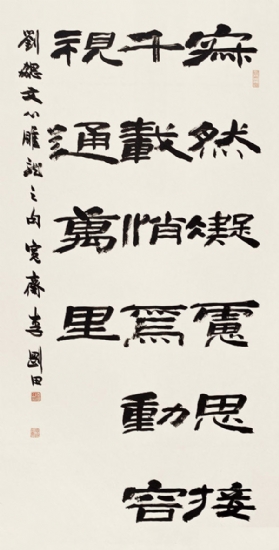 寂然凝慮思接
千載悄焉動容
視通萬里
劉勰文心雕龍之句寬齋劉田